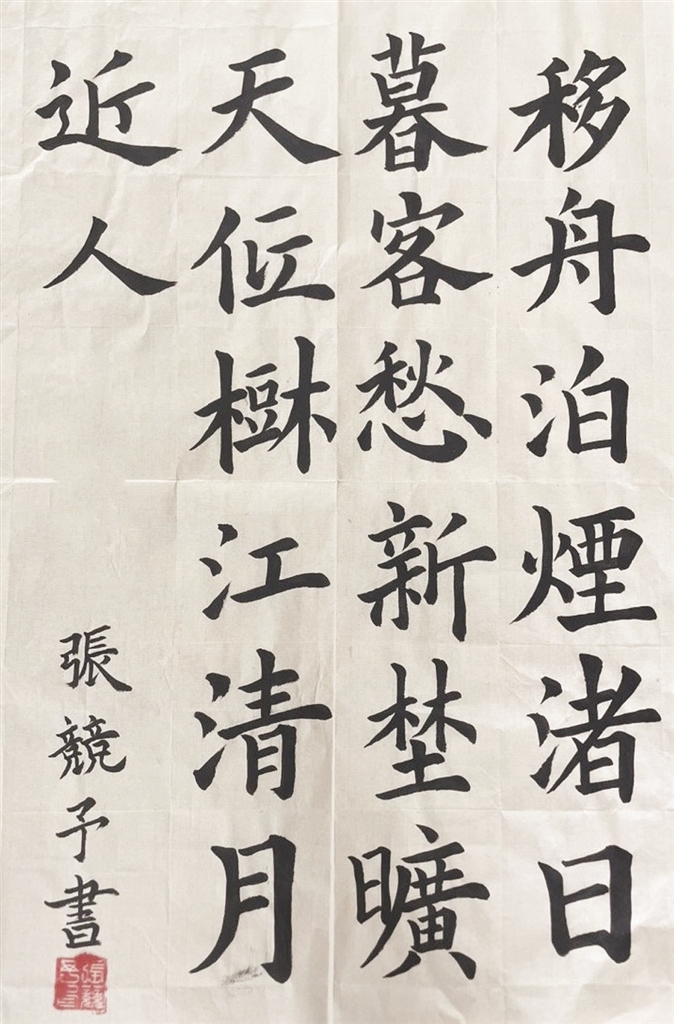 移舟泊煙渚日
暮客愁新埜曠
天低樹江清月
近人
張競予書